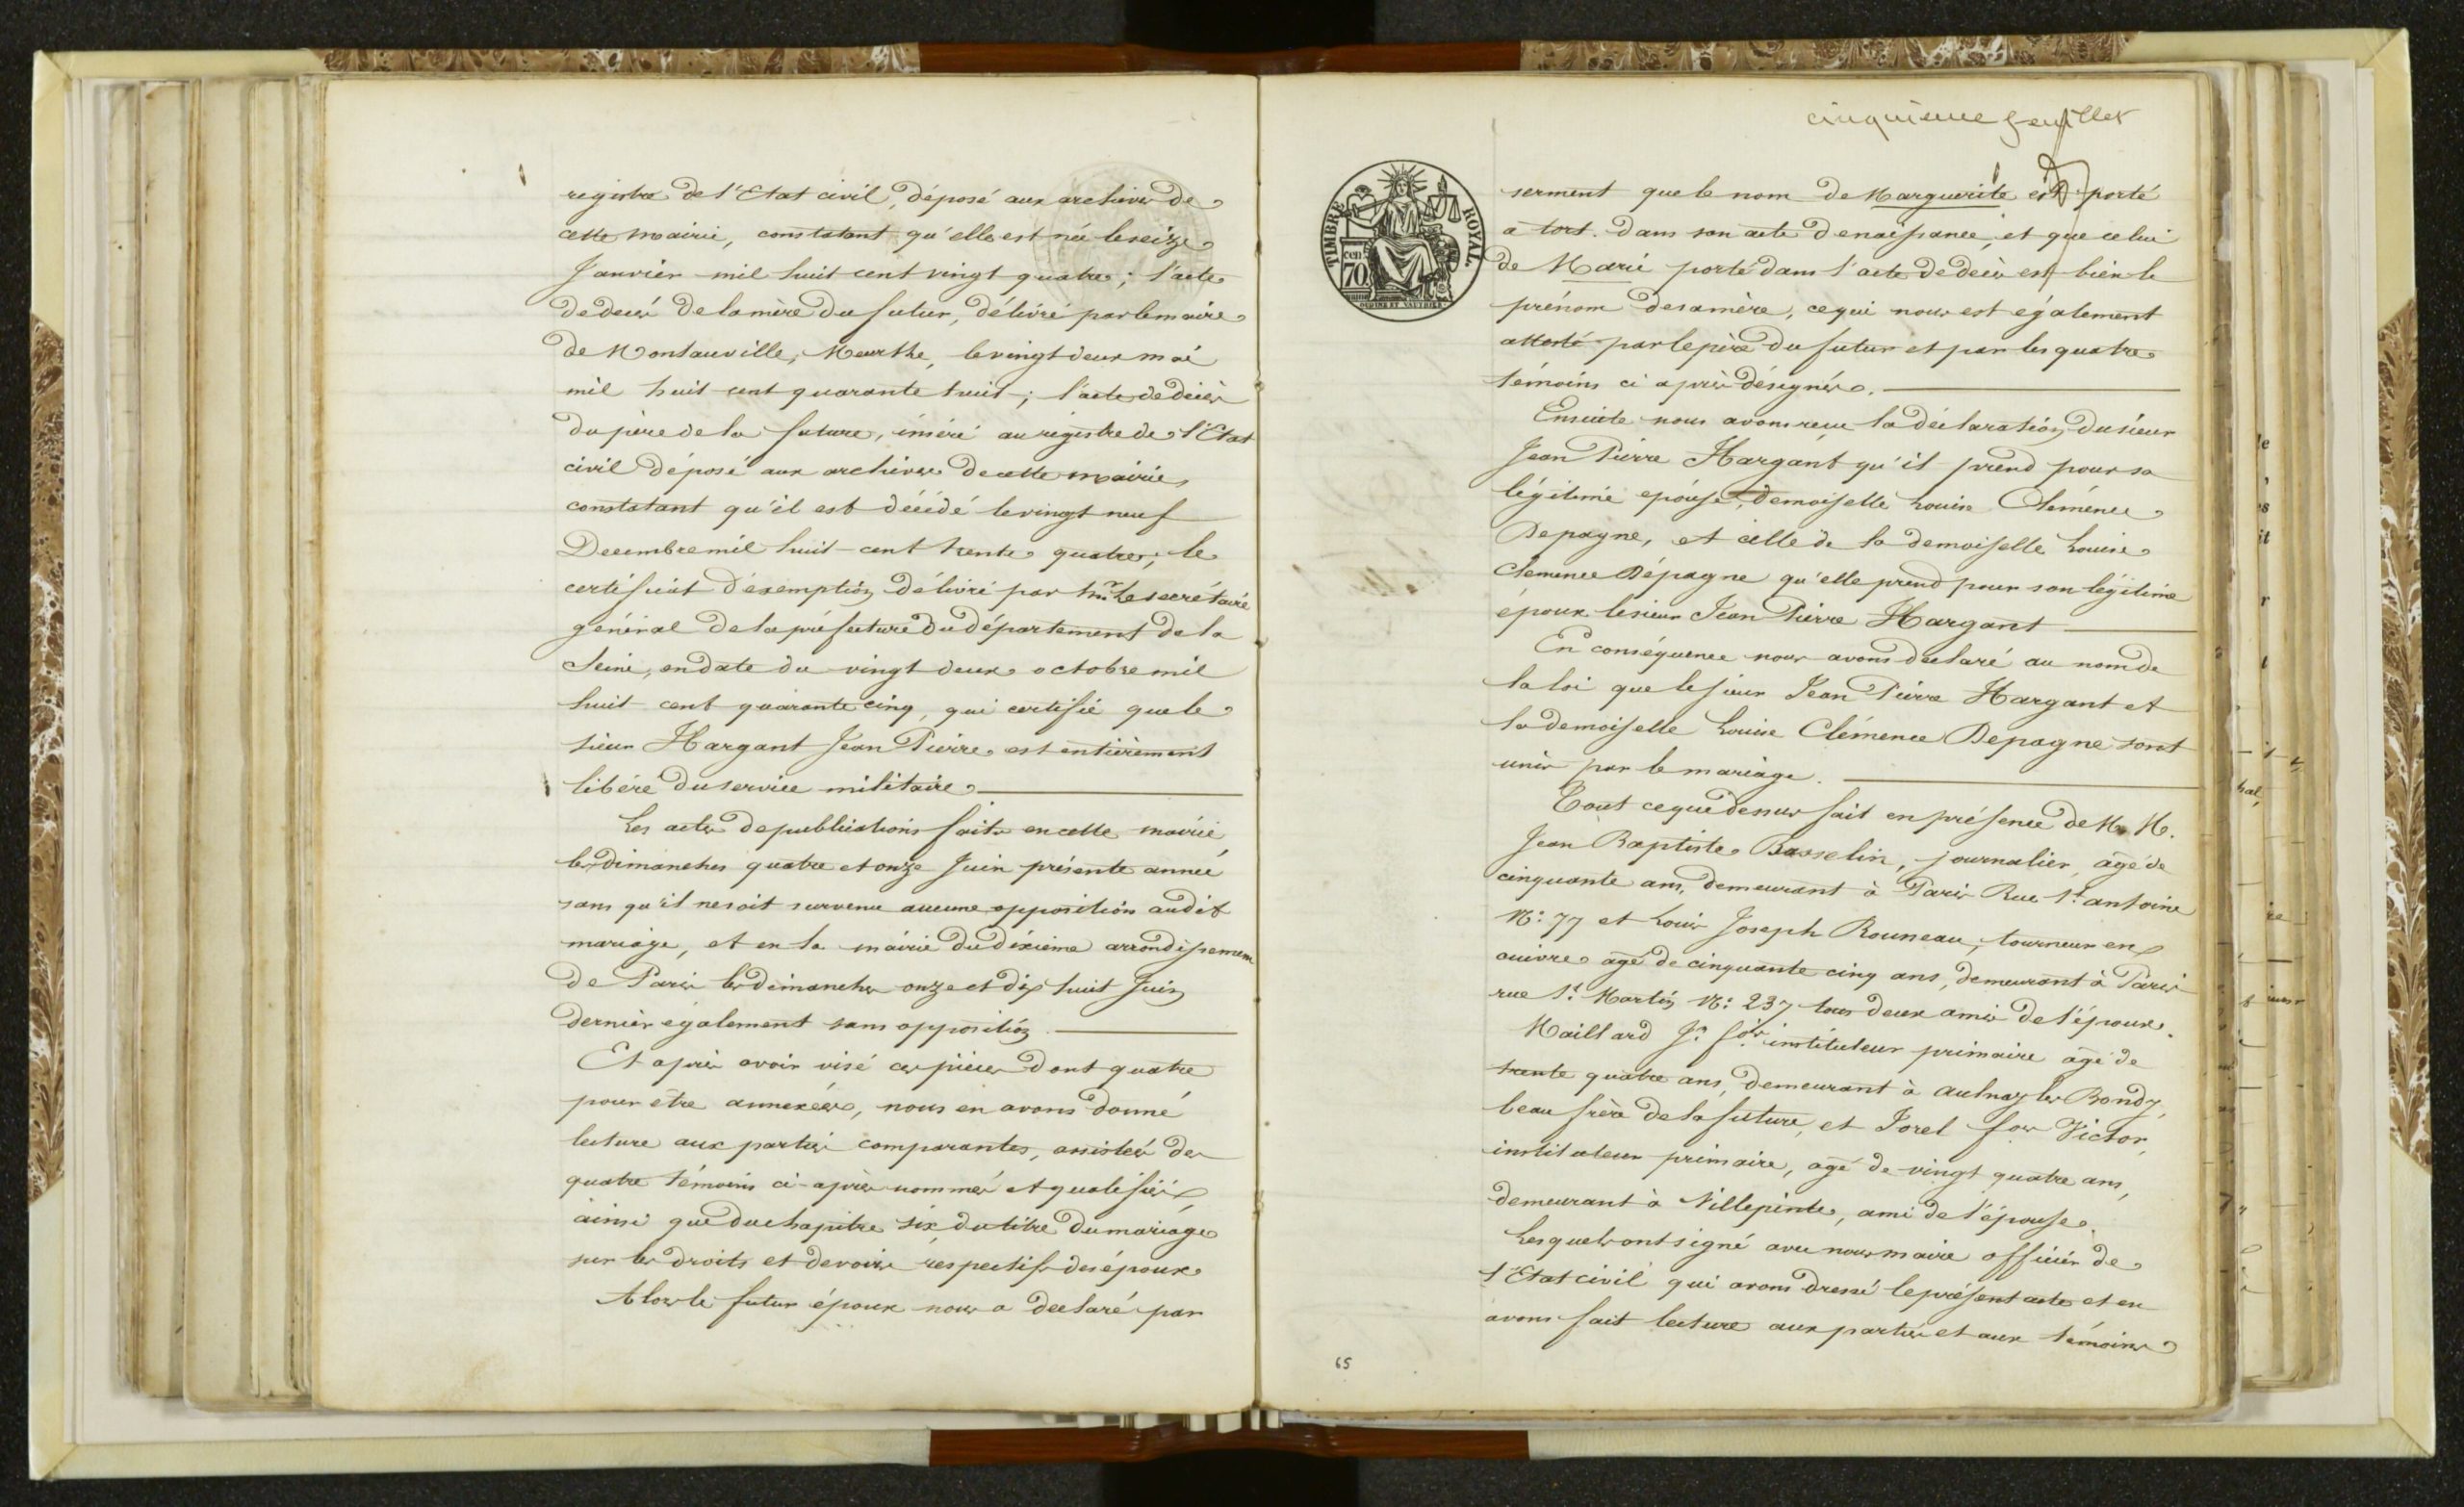 registre de l'Etat civil, déposé aux archives de
cette mairie, constatant qu'elle est née le seize
Janvier mil huit cent vingt quatre; l'acte
de decès de la mère du futur, délivré par le maire
de Montauville, Meurthe, le vingt deux mai
mil huit cent quarante huit; l'acte de décès
du père de la future, inséré au régistre de l'Etat
civil déposé aux archives de cette mairie,
constatant qu'il est décédé le vingt neuf
Decembre mil huit cent trente quatre; le
certificat d'exemption délivré par Mr. Le secrétaire
général de la préfecture du département de la
Seine, en date du vingt deux octobre mil
huit cent quarante cinq, qui certifie que le
sieur Hargant Jean Pierre est entièrement
libéré du service militaire
Les actes de publications faits en cette mairie
les dimanches quatre et onze Juin présente année
sans qu'il ne soit survenu aucune opposition audit
mariage, et en la mairie du dixième arrondissement
de Paris les dimanches onze et dix huit Juin
dernier également sans opposition
Et après avoir visé ces pièces dont quatre
pour être annexées, nous en avons donné
lecture aux parties comparantes, assistées de
quatre témoins ci-après nommés et qualifiés
ainsi que du chapitre six, du titre du mariage
sur les droits et devoirs respectifs des époux
Alors le futur époux nous a declaré par
cinquième feuillet
TIMBRE ROYAL
cen 70
serment que le nom de Marguerite est porté
a tort dans son acte de naissance, et que celui
de Marie porté dans l'acte de decès est bien le
prénom de sa mère, ce qui nous est également
attesté par le père du futur et par les quatre
témoins ci après désignés.
Ensuite nous avons reçu la déclaration du sieur
Jean Pierre Hargant qu'il prend pour sa
légitime epouse, demoiselle Louise Clémence
Depagne, et celle de la demoiselle Louise
Clemence Dépagne qu'elle prend pour son légitime
époux le sieur Jean Pierre Hargant
En conséquence nous avons declaré au nom de
la loi que le sieur Jean Pierre Hargant et
la demoiselle Louise Clémence Depagne sont
unis par le mariage.
Tout ce que dessus fait en présence de M. M.
Jean Baptiste Basselin, journalier, agé de
cinquante ans, demeurant à Paris Rue St. antoine
N°: 77 et Louis Joseph Rouneau, tourneur en
cuivre agé de cinquante cinq ans, demeurant à Paris
rue St. Martin N°: 237 tous deux amis de l'époux.
Maillard Jn. fois instituteur primaire agé de
trente quatre ans, demeurant à Aulnay les Bondy,
beau frère de la future, et Jorel fois Victor,
instituteur primaire, agé de vingt quatre ans,
demeurant à Villepinte, ami de l'épouse.
Lesquels ont signé avec nous maire officier de
l'Etat civil qui avons dressé le présent acte et en
avons fait lecture aux parties et aux témoins
65